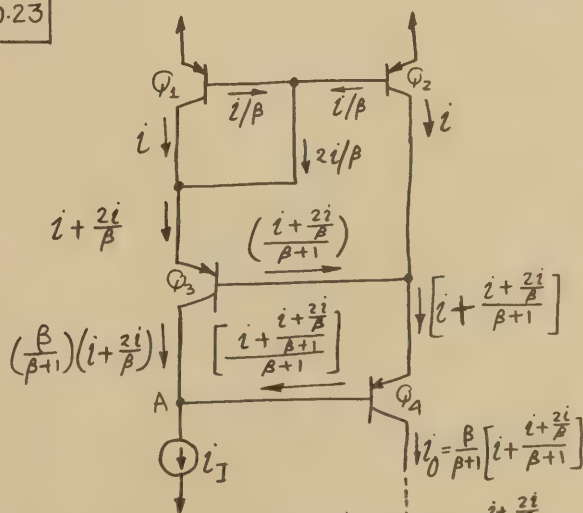 0.23
Q1 Q2
i/β i/β
i i
2i/β
i + 2i/β
((i + 2i/β)/(β+1))
Q3
[i + (i + 2i/β)/(β+1)]
(β/(β+1))(i + 2i/β)
[(i + (i + 2i/β)/(β+1))/(β+1)]
A Q4
i_I
i_0 = β/(β+1) [i + (i + 2i/β)/(β+1)]
i + 2i/β